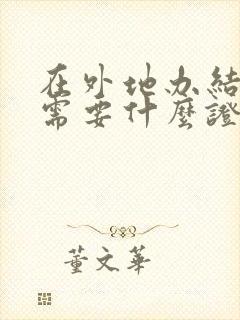 在外地办結
需要什麼證
董文華